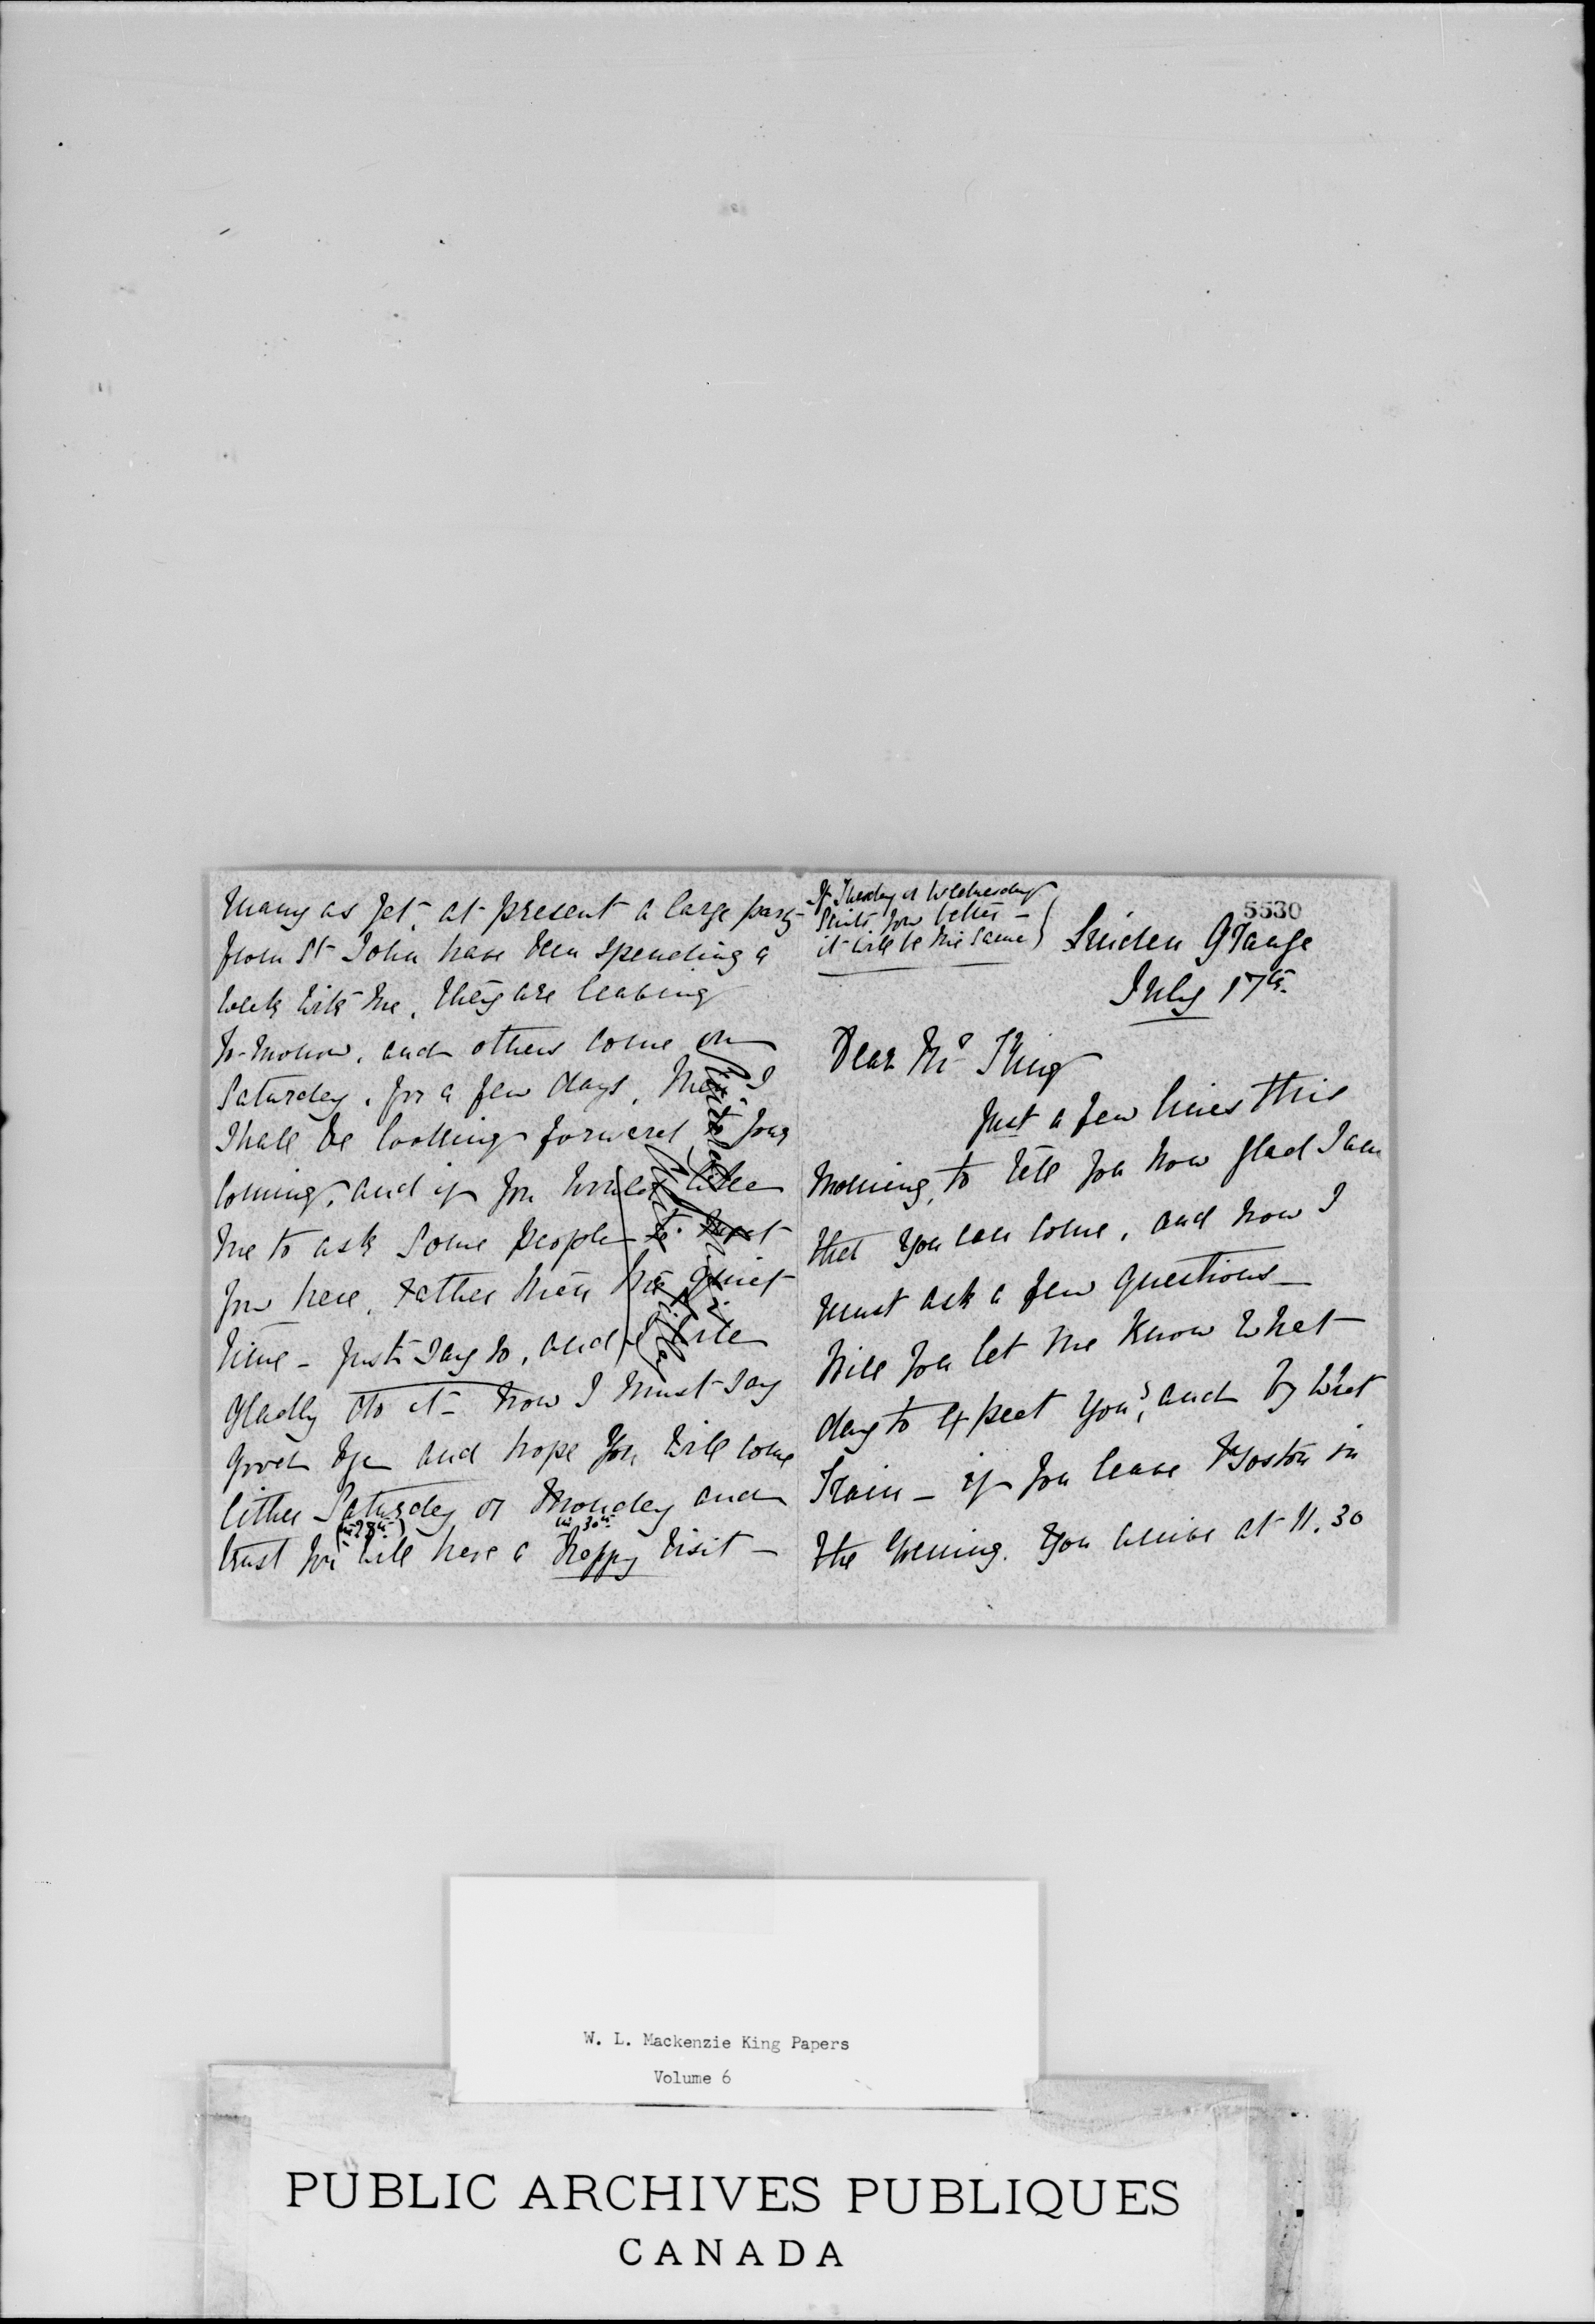 5530
If Tuesday or Wednesday
suits you better –
it will be the same
Linden Grange
July 17th.
Dear Mr King
Just a few lines this
morning, to tell you how glad I am
that you can come, and now I
must ask a few questions –
Will you let me know what
day to expect you, and by what
Train – if you leave Boston in
the Evening. You arrive at 11.30
many as yet, at present a large party
from St John have been spending a
week with me. They are leaving
to-morrow, and others come on
Saturday, for a few days. Then I
shall be looking forward to your
coming, and if you would like
me to ask some people to meet
you here, rather than the quiet
time – just say so, and I will
gladly do it – Now I must say
good bye and hope you will come
either Saturday or Monday and
(the 28th) the 30th
trust you will have a happy visit –
W. L. Mackenzie King Papers
Volume 6
PUBLIC ARCHIVES PUBLIQUES
CANADA